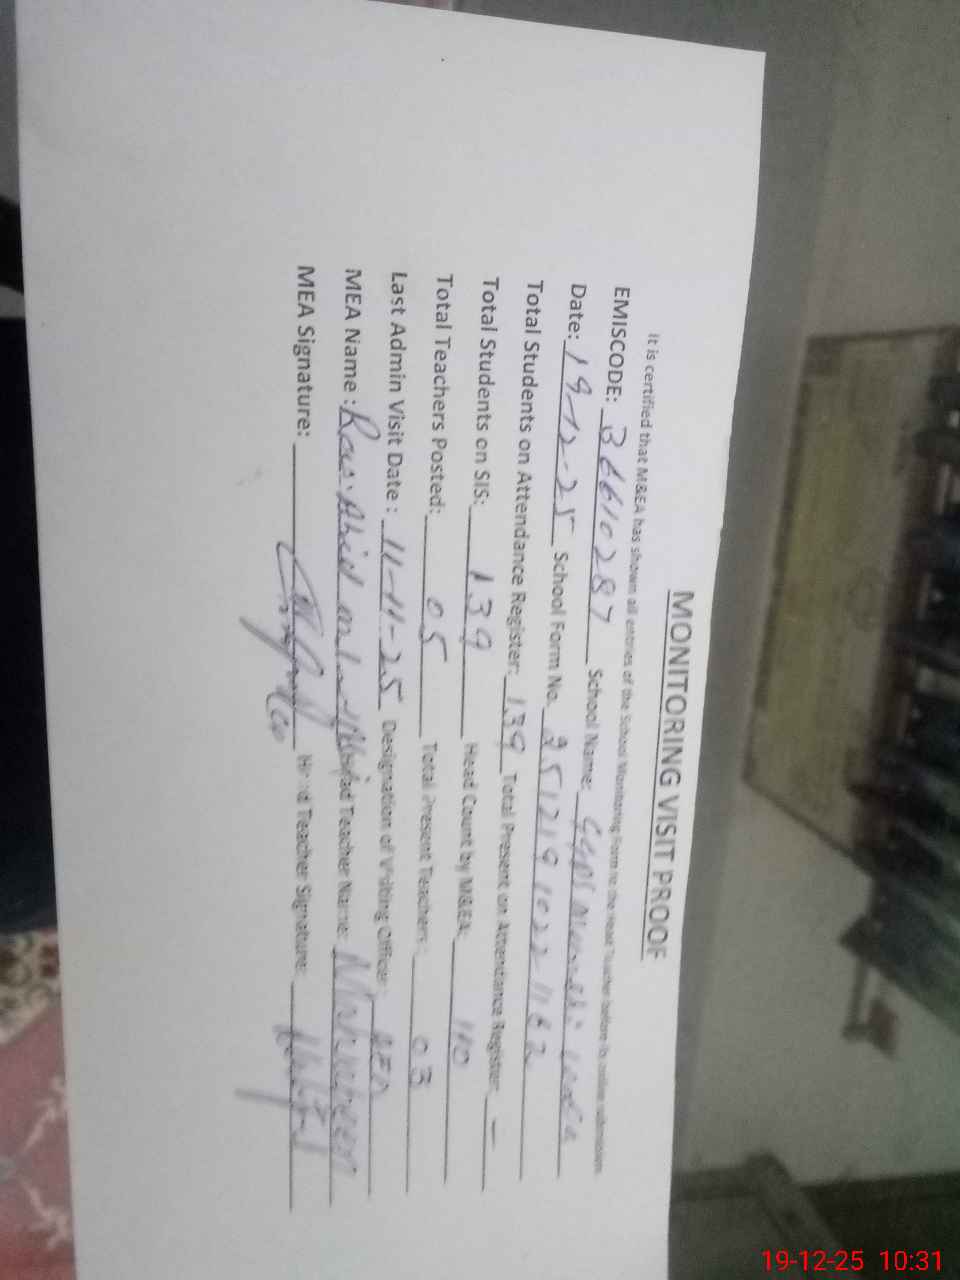 MONITORING VISIT PROOF
It is certified that M&EA has shown all entries of the School Monitoring Form to the Head Teacher before its online submission
EMISCODE: 36610287 School Name: GGPS
Date: 19-12-25 School Form No. 2512191022 1162
Total Students on Attendance Register: 139 Total Present on Attendance Register: -
Total Students on SIS: 139 Head Count by M&EA: 110
Total Teachers Posted: 05 Total Present Teachers: 03
Last Admin Visit Date: 11-11-25 Designation of Visiting Officer: AEO
MEA Name: Abid Head Teacher Name:
MEA Signature: Head Teacher Signature:
19-12-25 10:31